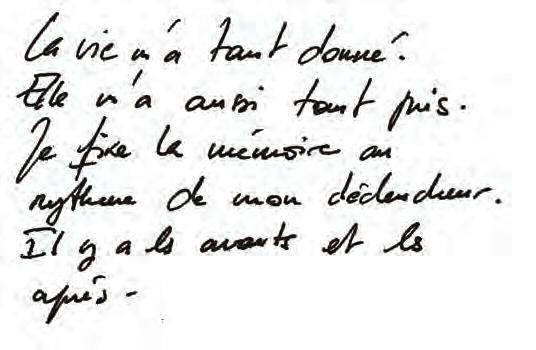 La vie m'a tant donné.
Elle m'a aussi tant pris.
Je fixe la mémoire au
rythme de mon déclencheur.
Il y a les avants et les
après.